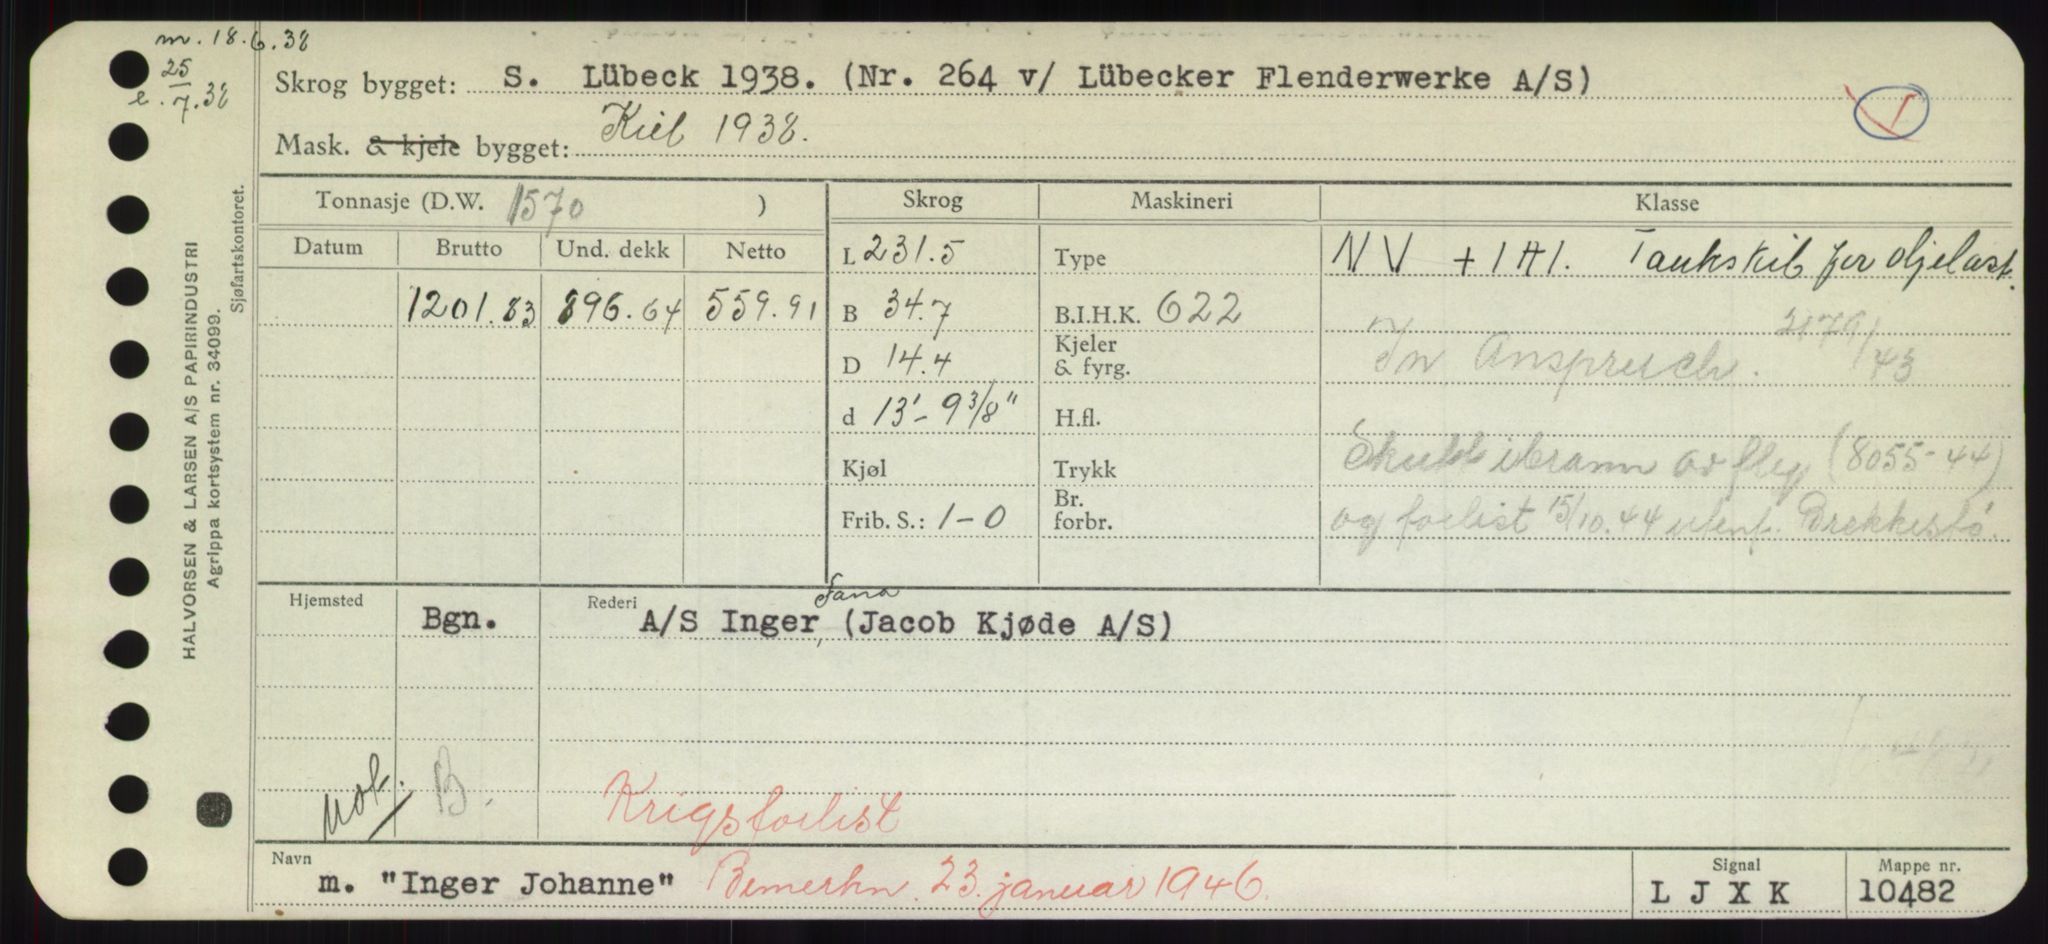 m. 18.6.38
25
e. 7.38
Skrog bygget: S. Lübeck 1938. (Nr. 264 v/ Lübecker Flenderwerke A/S)
Mask. & kjele bygget: Kiel 1938.
Tonnasje (D.W. 1570 )
Skrog Maskineri Klasse
Datum Brutto Und. dekk Netto
L 231.5 Type NV + 1A1. Tankskib for oljelast.
1201.83 896.64 559.91 B 34.7 B.I.H.K. 622
In Anspruch. 2179/43
D 14.4 Kjeler & fyrg.
d 13'-9 3/8" H.fl.
Kjøl Trykk Skutt i brann av fly (8055-44)
Frib. S.: 1-0 Br. forbr. og forlist 15/10.44 utenf. Brekkestø.
Hjemsted Bgn. Rederi A/S Inger Fana, (Jacob Kjøde A/S)
Not. B. Krigsforlist
Navn m. "Inger Johanne" Bemerkn. 23. januar 1946.
Signal L J X K
Mappe nr. 10482
HALVORSEN & LARSEN A/S PAPIRINDUSTRI
Agrippa kortsystem nr. 34099.
Sjøfartskontoret.